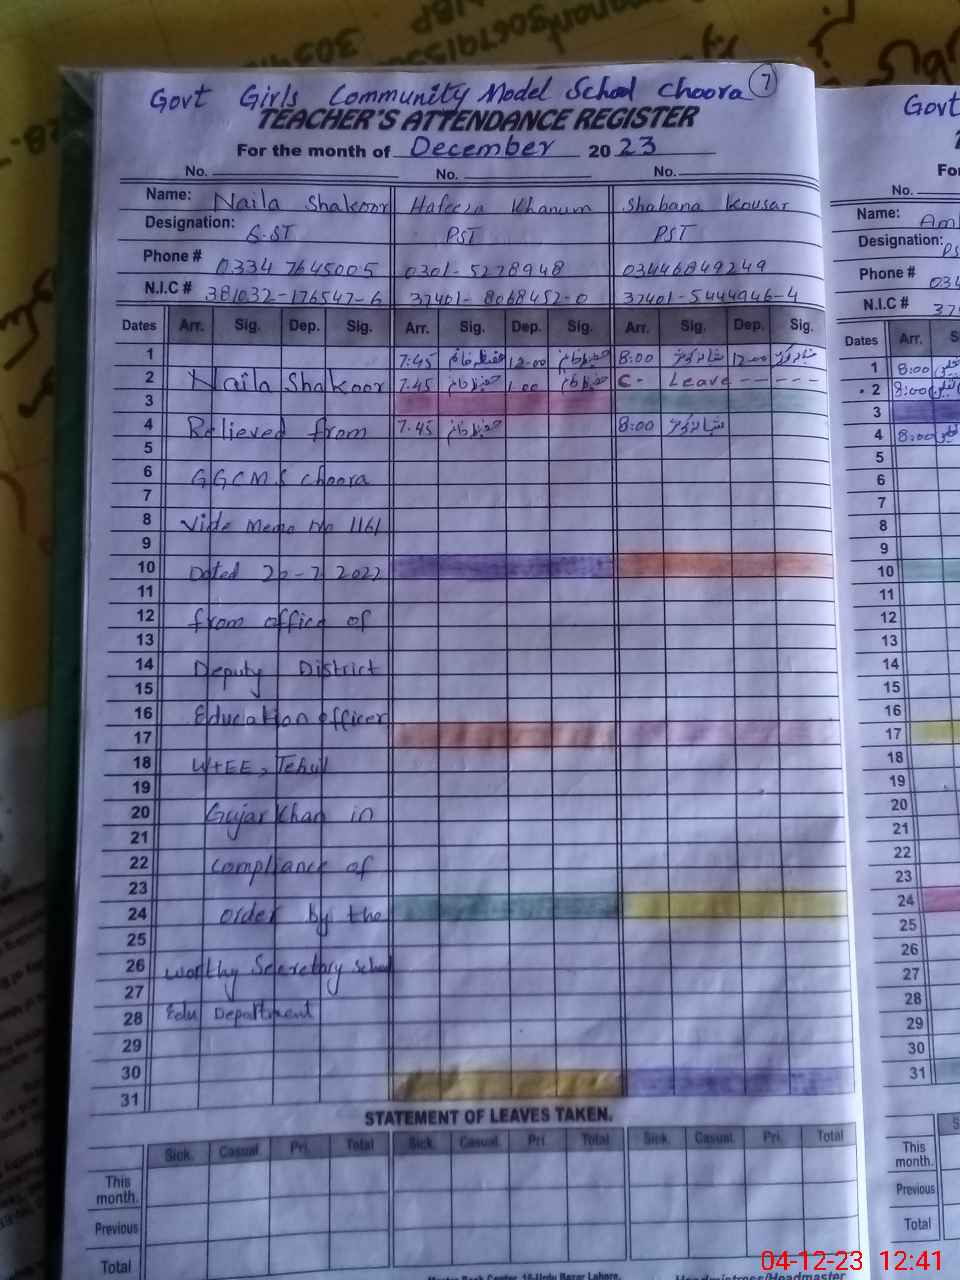 Govt Girls Community Model School Choora 7
TEACHER'S ATTENDANCE REGISTER
For the month of December 2023
No. No. No.
Name: Naila Shakoor Hafeeza Khanum Shabana Kousar
Designation: S.ST PST PST
Phone # 0334 7645005 0301-5278948 03446849249
N.I.C # 381032-176547-6 37401-8068452-0 37401-5444946-4
Dates Arr. Sig. Dep. Sig. Arr. Sig. Dep. Sig. Arr. Sig. Dep. Sig.
1 7:45 12:00 8:00 12:00
2 Naila Shakoor 7:45 1:00 C- Leave -----
3
4 Relieved from 7:45 8:00
5
6 GGCMS Choora
7
8 Vide Memo No 1161
9
10 Dated 2022
11
12 from office of
13
14 Deputy District
15
16 Education officer
17
18 W+EE, Tehsil
19
20 Gujar Khan in
21
22 compliance of
23
24 order by the
25
26 worthy Secretary School
27
28 Edu Department
29
30
31
STATEMENT OF LEAVES TAKEN.
Sick. Casual. Pri. Total Sick. Casual. Pri. Total Sick. Casual. Pri. Total
This month.
Previous
Total
Book Center, 16-Urdu Bazar Lahore. Headmistress/Headmaster
Govt
No.
Name:
Designation:
Phone #
N.I.C #
Dates Arr.
1 8:00
2 8:00
3
4 8:00
5
6
7
8
9
10
11
12
13
14
15
16
17
18
19
20
21
22
23
24
25
26
27
28
29
30
31
This month.
Previous
Total
04-12-23 12:41